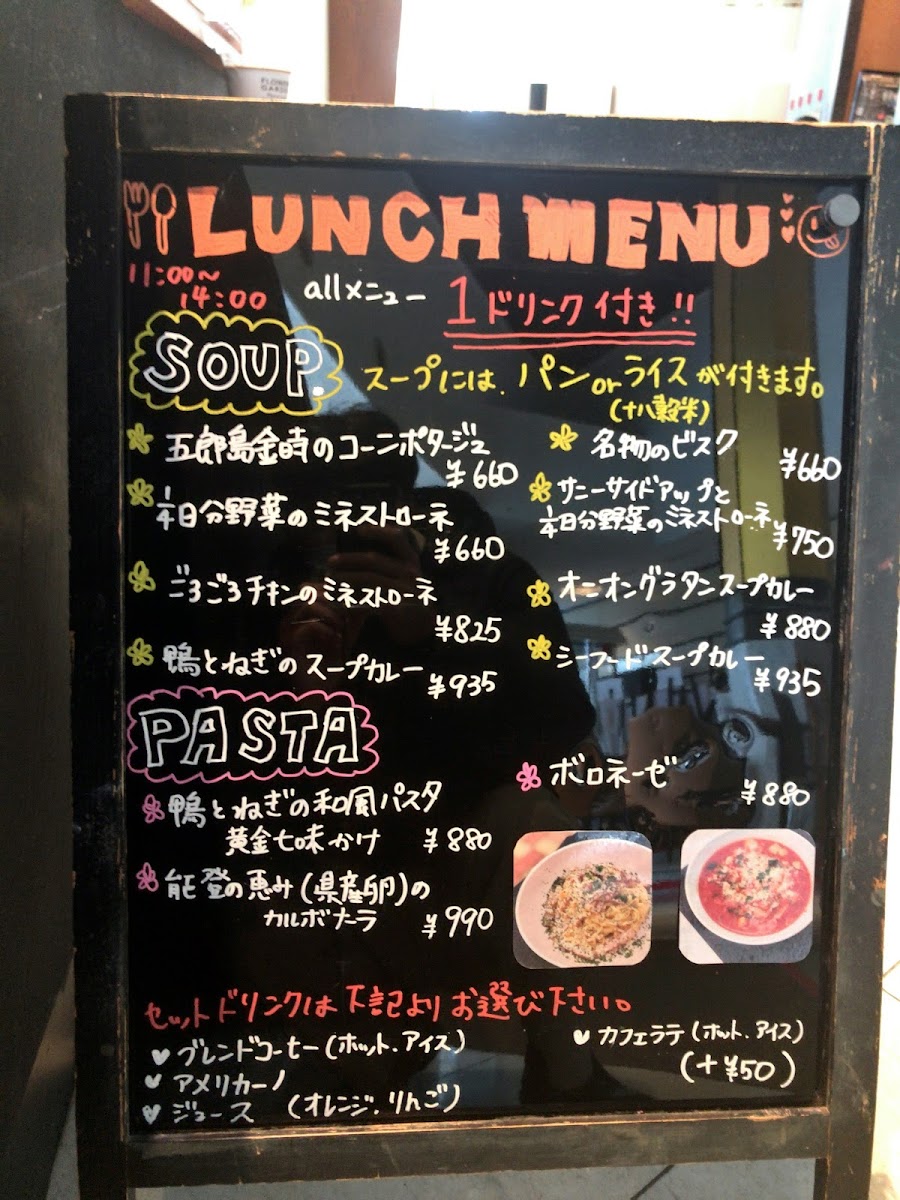 LUNCH MENU
11:00~
14:00
allメニュー
1ドリンク付き!!
SOUP.
スープには、パンorライスが付きます。
(十八穀米)
五郎島金時のコーンポタージュ
¥660
名物のビスク
¥660
1/4日分野菜のミネストローネ
¥660
サニーサイドアップと
1/4日分野菜のミネストローネ
¥750
ごろごろチキンのミネストローネ
¥825
オニオングラタンスープカレー
¥880
鴨とねぎのスープカレー
¥935
シーフードスープカレー
¥935
PASTA
鴨とねぎの和風パスタ
黄金七味かけ ¥880
ボロネーゼ
¥880
能登の恵み(県産卵)の
カルボナーラ ¥990
セットドリンクは下記よりお選び下さい。
ブレンドコーヒー(ホット・アイス)
アメリカーノ
ジュース (オレンジ・りんご)
カフェラテ(ホット・アイス)
(+¥50)